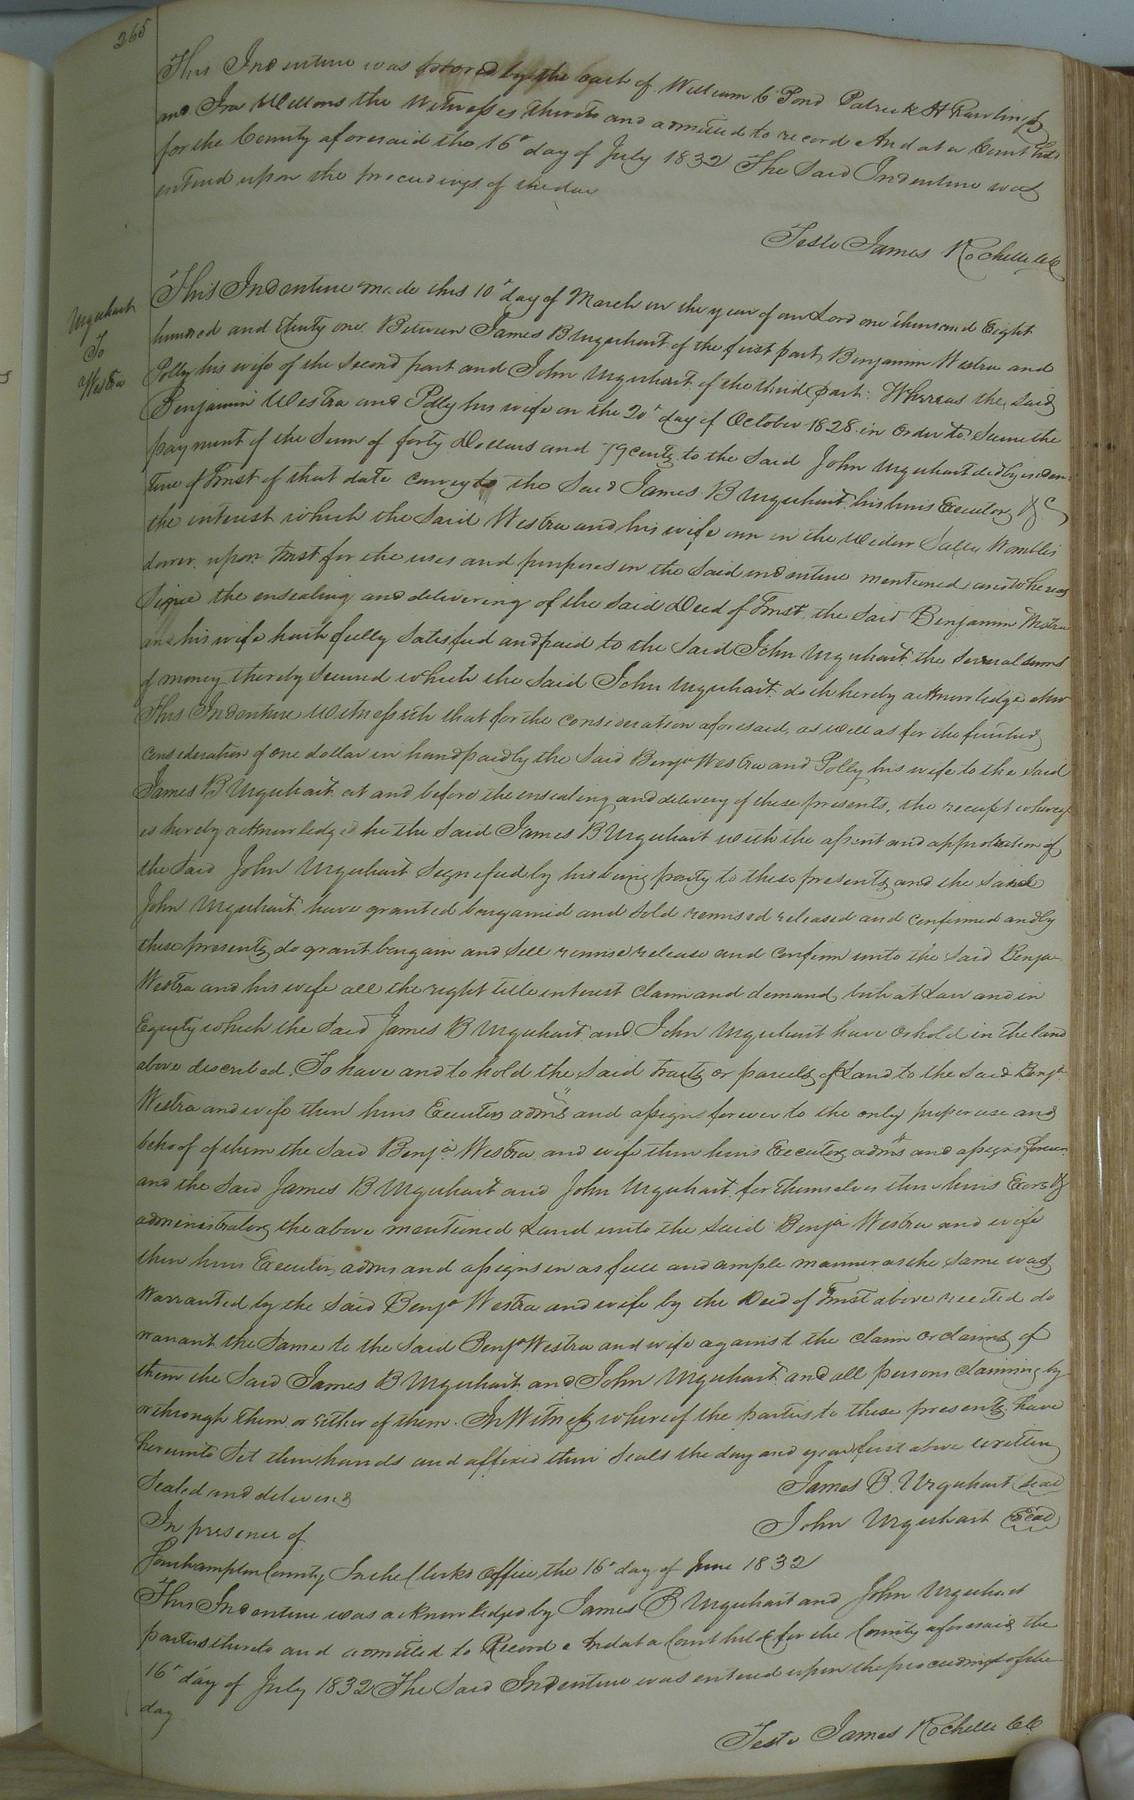 265
This Indenture was proved by the oath of William C Pond Patrick H Rawlings
and Ira Wellons the witnesses thereto and admitted to record And at a Court held
for the County aforesaid the 16 day of July 1832 The Said Indenture was
entered upon the proceedings of the day
Teste James Rochelle CC
Urquhart
To
Westra
This Indenture made this 10 day of March in the year of our Lord one thousand Eight
hundred and thirty one Between James B Urquhart of the first part, Benjamin Westra and
Polly his wife of the second part and John Urquhart of the third part: Whereas the said
Benjamin Westra and Polly his wife on the 20 day of October 1828 in order to Secure the
payment of the Sum of forty Dollars and 79 cents to the Said John Urquhart did by inden
ture of Trust of that date convey to the Said James B Urquhart his heirs Executors &c
the interest which the Said Westra and his wife own in the Widow Sally
dower upon trust for the uses and purposes in the Said indenture mentioned and Whereas
Since the ensealing and delivering of the Said Deed of Trust the Said Benjamin Westra
and his wife hath fully Satisfied and paid to the Said John Urquhart the Several sums
of money thereby Secured which the Said John Urquhart doth hereby acknowledge Now
This Indenture Witnesseth that for the consideration aforesaid, as well as for the further
consideration of one dollar in hand paid by the Said Benja Westra and Polly his wife to the said
James B Urquhart at and before the ensealing and delivery of these presents, the receipt whereof
is hereby acknowledged he the Said James B Urquhart with the assent and approbation of
the Said John Urquhart Signefied by his being party to these presents and the Said
John Urquhart have granted bargained and Sold remised released and confirmed and by
these presents do grant bargain and Sell remise release and confirm unto the Said Benja
Westra and his wife all the right title interest claim and demand both at Law and in
Equity which the Said James B Urquhart and John Urquhart have or hold in the land
above described. To have and to hold the Said tracts or parcels of Land to the Said Benja
Westra and wife their heirs Executors adms and assigns forever to the only proper use and
behoof of them the Said Benja Westra and wife their heirs Executors adms and assigns forever
and the Said James B Urquhart and John Urquhart for themselves their heirs Exors &
administrators the above mentioned Land unto the Said Benja Westra and wife
their heirs Executors, adms and assigns in as full and ample manner as the Same was
Warranted by the Said Benja Westra and wife by the Deed of Trust above recited do
warrant the Same to the Said Benja Westra and wife against the claim or claims of
them the Said James B Urquhart and John Urquhart and all persons claiming by
or through them or either of them. In Witness whereof the parties to these presents have
hereunto Set their hands and affixed their Seals the day and year first above written
Sealed and delivered
James B. Urquhart Seal
In presence of
John Urquhart Seal
Southampton County In the Clerks office, the 16 day of June 1832
This Indenture was acknowledged by James B Urquhart and John Urquhart
parties thereto and admitted to Record And at a Court held for the County aforesaid the
16 day of July 1832 The Said Indenture was entered upon the proceedings of the
day
Teste James Rochelle CC